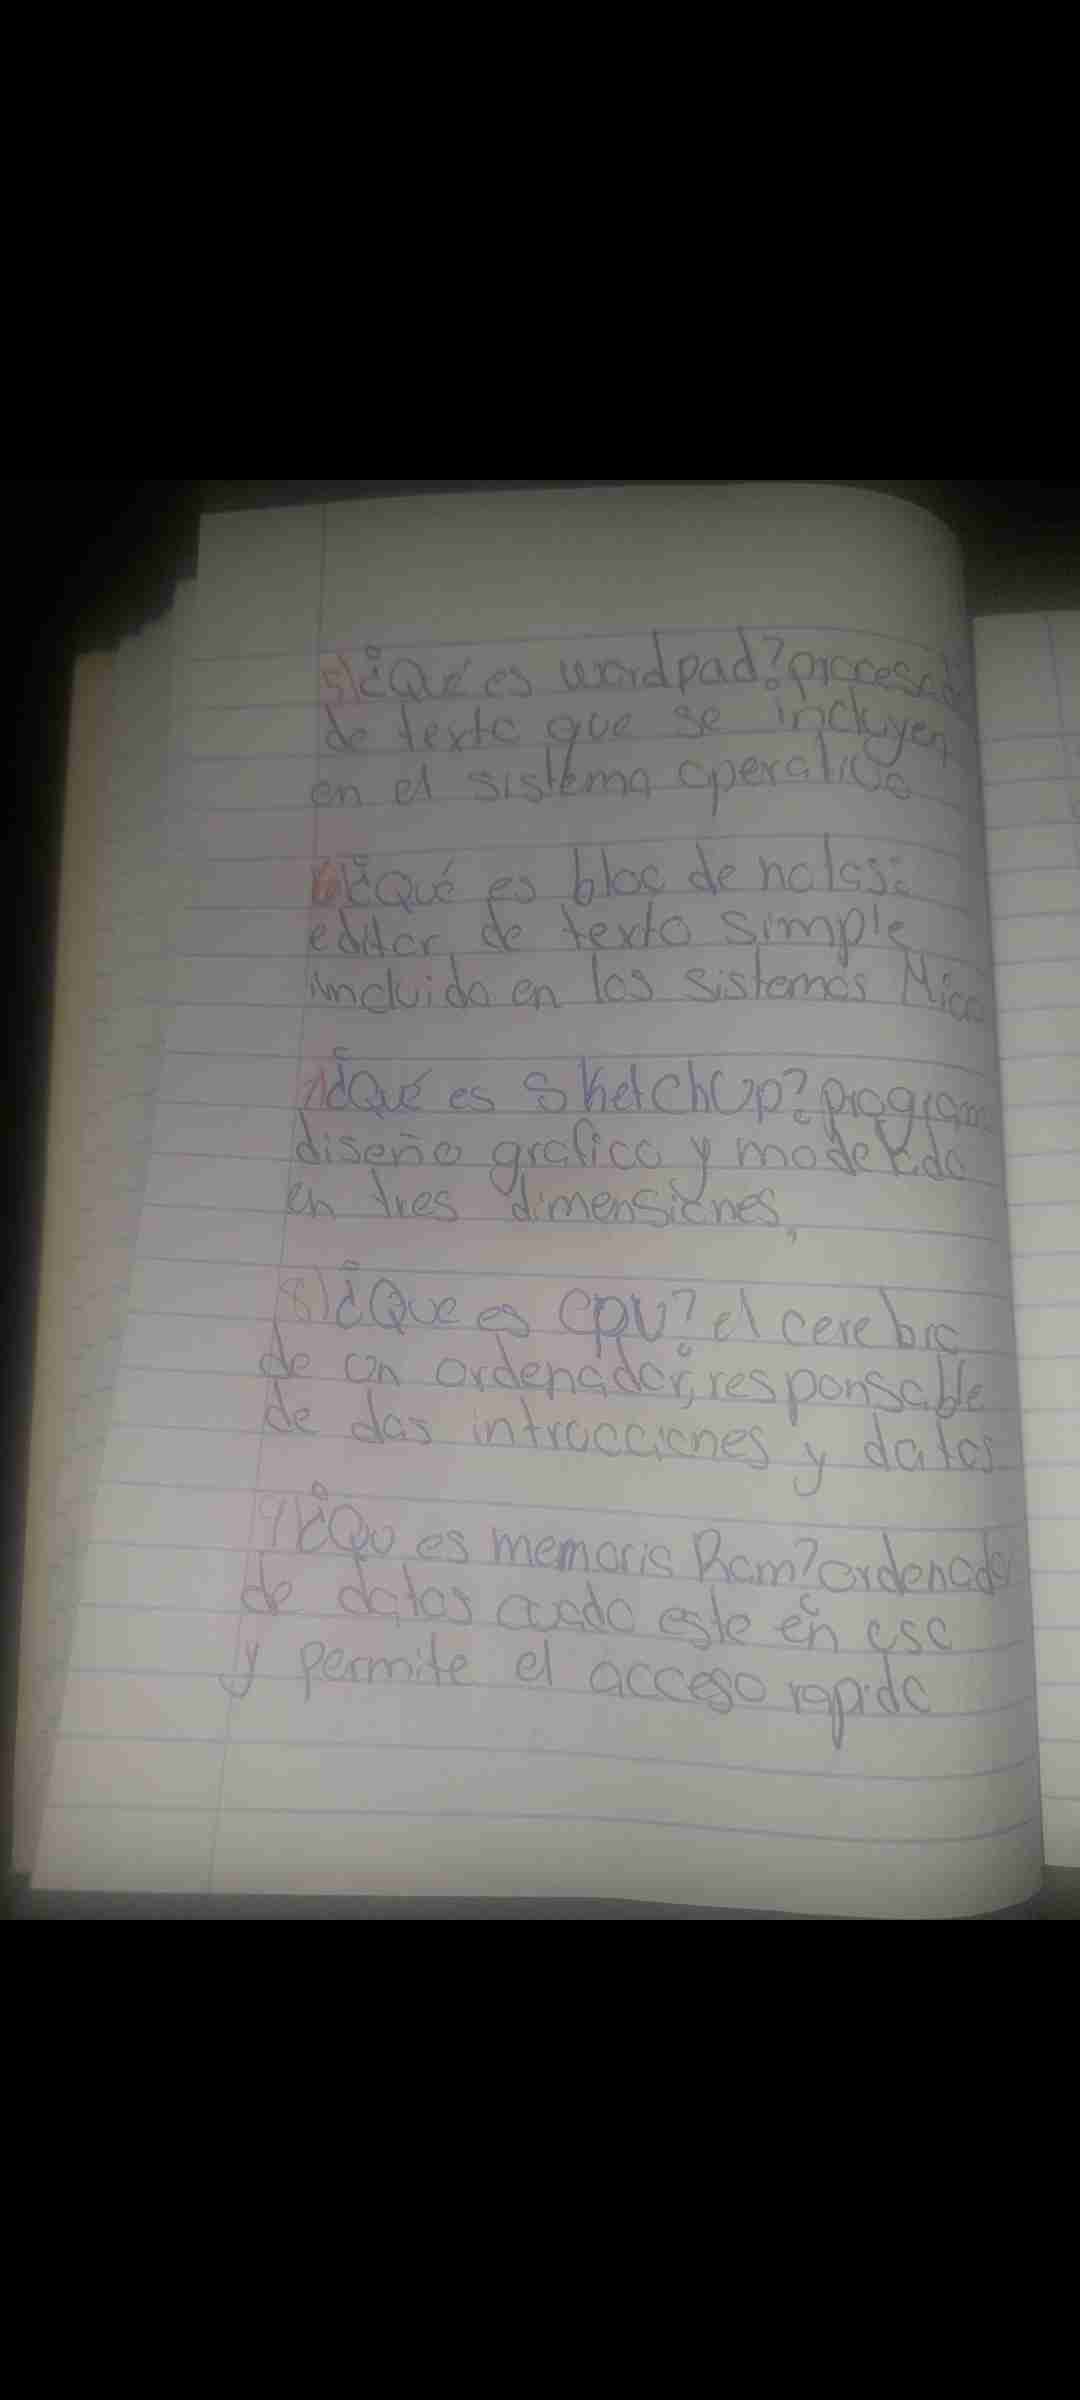 5) ¿Qué es wordpad? procesad
de texto que se incluyen
en el sistema operativo
6) ¿Qué es bloc de notas:
editor de texto simple
iincluido en los sistemas Mico
7) ¿Qué es SketchUp? program
diseño grafico y modelado
en tres dimensiones,
8) ¿Que es CPU? el cerebro
de un ordenador, responsable
de das intrucciones y datos
9) ¿Qu es memoris Ram? ordenado
de datos cuado este en uso
y permite el acceso rapido